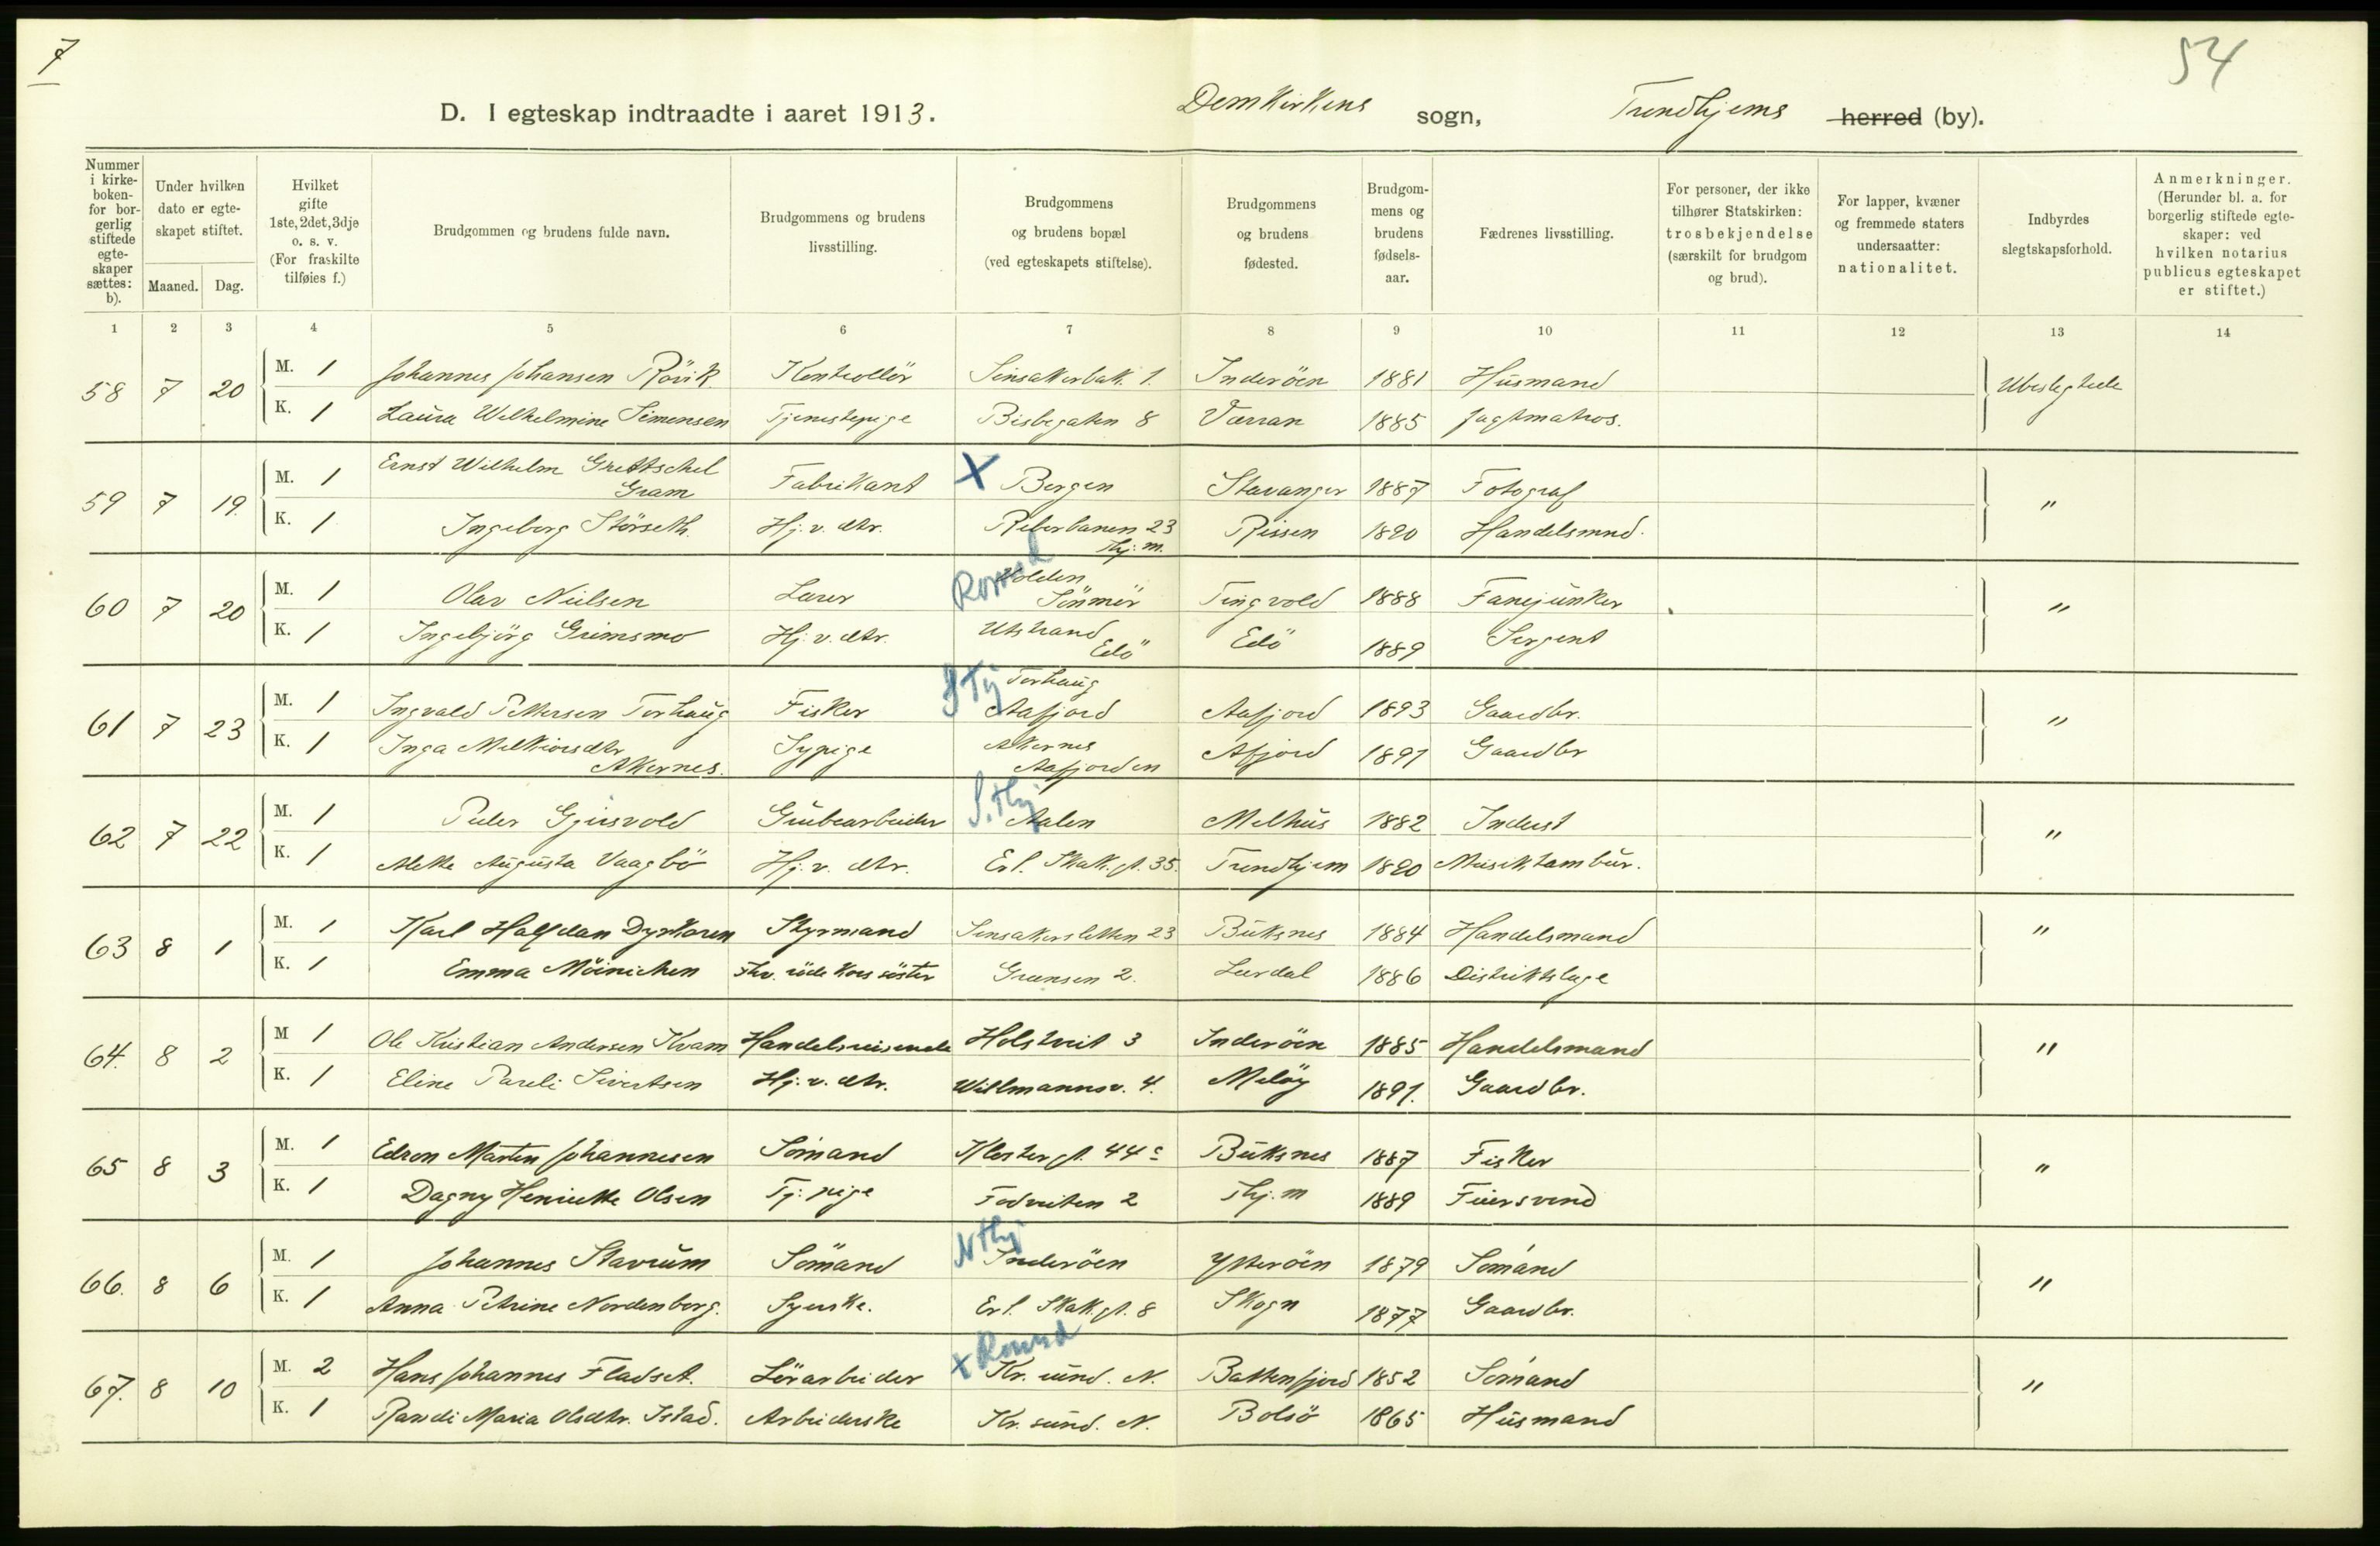 7
54
D. I egteskap indtraadte i aaret 1913. Domkirkens sogn, Trondhjems herred (by).
Nummer i kirkeboken- for borgerlig stiftede egteskaper sættes: b).
Under hvilken dato er egteskapet stiftet.
Maaned. Dag.
Hvilket gifte 1ste, 2det, 3dje o. s. v. (For fraskilte tilføies f.)
Brudgommen og brudens fulde navn.
Brudgommens og brudens livsstilling.
Brudgommens og brudens bopæl (ved egteskapets stiftelse).
Brudgommens og brudens fødested.
Brudgommens og brudens fødselsaar.
Fædrenes livsstilling.
For personer, der ikke tilhører Statskirken: trosbekjendelse (særskilt for brudgom og brud).
For lapper, kvæner og fremmede staters undersaatter: nationalitet.
Indbyrdes slegtskapsforhold.
Anmerkninger. (Herunder bl. a. for borgerlig stiftede egteskaper: ved hvilken notarius publicus egteskapet er stiftet.)
1 2 3 4 5 6 7 8 9 10 11 12 13 14
58 7 20 M. 1 Johannes Johansen Rövik Kontrollör Sinsakerbak. 1. Inderöen 1881 Husmand Ubeslegtede
K. 1 Laura Wilhelmine Simonsen Tjenestepige Bispegaten 8 Værran 1885 Jagtmatros.
59 7 19. M. 1 Ernst Wilhelm Grettschel Gram Fabrikant X Bergen Stavanger 1887 Fotograf "
K. 1 Ingeborg Störseth. Hj. v. dtr. Reberbanen 23 Thj: m. Rissen 1890 Handelsmnd.
60 7 20 M. 1 Olav Nielsen Lærer Romsd Volden Sönmör Tingvold 1888 Fanejunker "
K. 1 Ingebjörg Grimsmo Hj. v. dtr. Utstrand Edö Edö 1889 Sergent
61 7 23 M. 1 Ingvald Pettersen Torhaug Fisker S Tj Torhaug Aafjord Aafjord 1893 Gaardbr. "
K. 1 Inga Melkiorsdtr Akernes. Sypige Akernes Aafjorden Afjord 1891 Gaardbr
62 7 22 M. 1 Peder Gjisvold Grubearbeider S. thj Aalen Melhus 1882 Inderst "
K. 1 Mette Augusta Vaagbö Hj. v. dtr. Erl. Skak. gt. 35. Trondhjem 1890 Musiktambur.
63 8 1 M. 1 Karl Halfdan Dyrkoren Styrmand Sinsakersletten 23 Buksnes 1884 Handelsmand "
K. 1 Emma Möinichen Fhv. röde kors söster Grænsen 2. Lærdal 1886 Distriktslæge
64. 8 2 M 1 Ole Kristian Andersen Kvam Handelsreisende Holstveit 3 Inderöen 1885 Handelsmand "
K. 1 Eline Pareli Sivertsen Hj. v. dtr. Willmannsv. 4. Melöy 1891. Gaardbr.
65 8 3 M. 1 Edron Martin Johannesen Sömand Kloster gt. 44 c Buksnes 1887 Fisker "
K. 1 Dagny Henriette Olsen Tj: pige Fodveiten 2 Thj. m 1889 Feiersvend
66. 8 6 M. 1 Johannes Stavrum Sömand N thj Inderöen Ytteröen 1879 Sömand "
K. 1 Anna Petrine Nordenborg. Syerske. Erl. Skak. gt. 8 Skogn 1877 Gaardbr.
67. 8 10 M. 2 Hans Johannes Fladset. Lörarbeider x Romsd Kr. sund. N. Battenfjord 1852 Sömand "
K. 1 Randi Maria Olsdtr. Istad. Arbeiderske Kr. sund. N. Bolsö 1865 Husmand